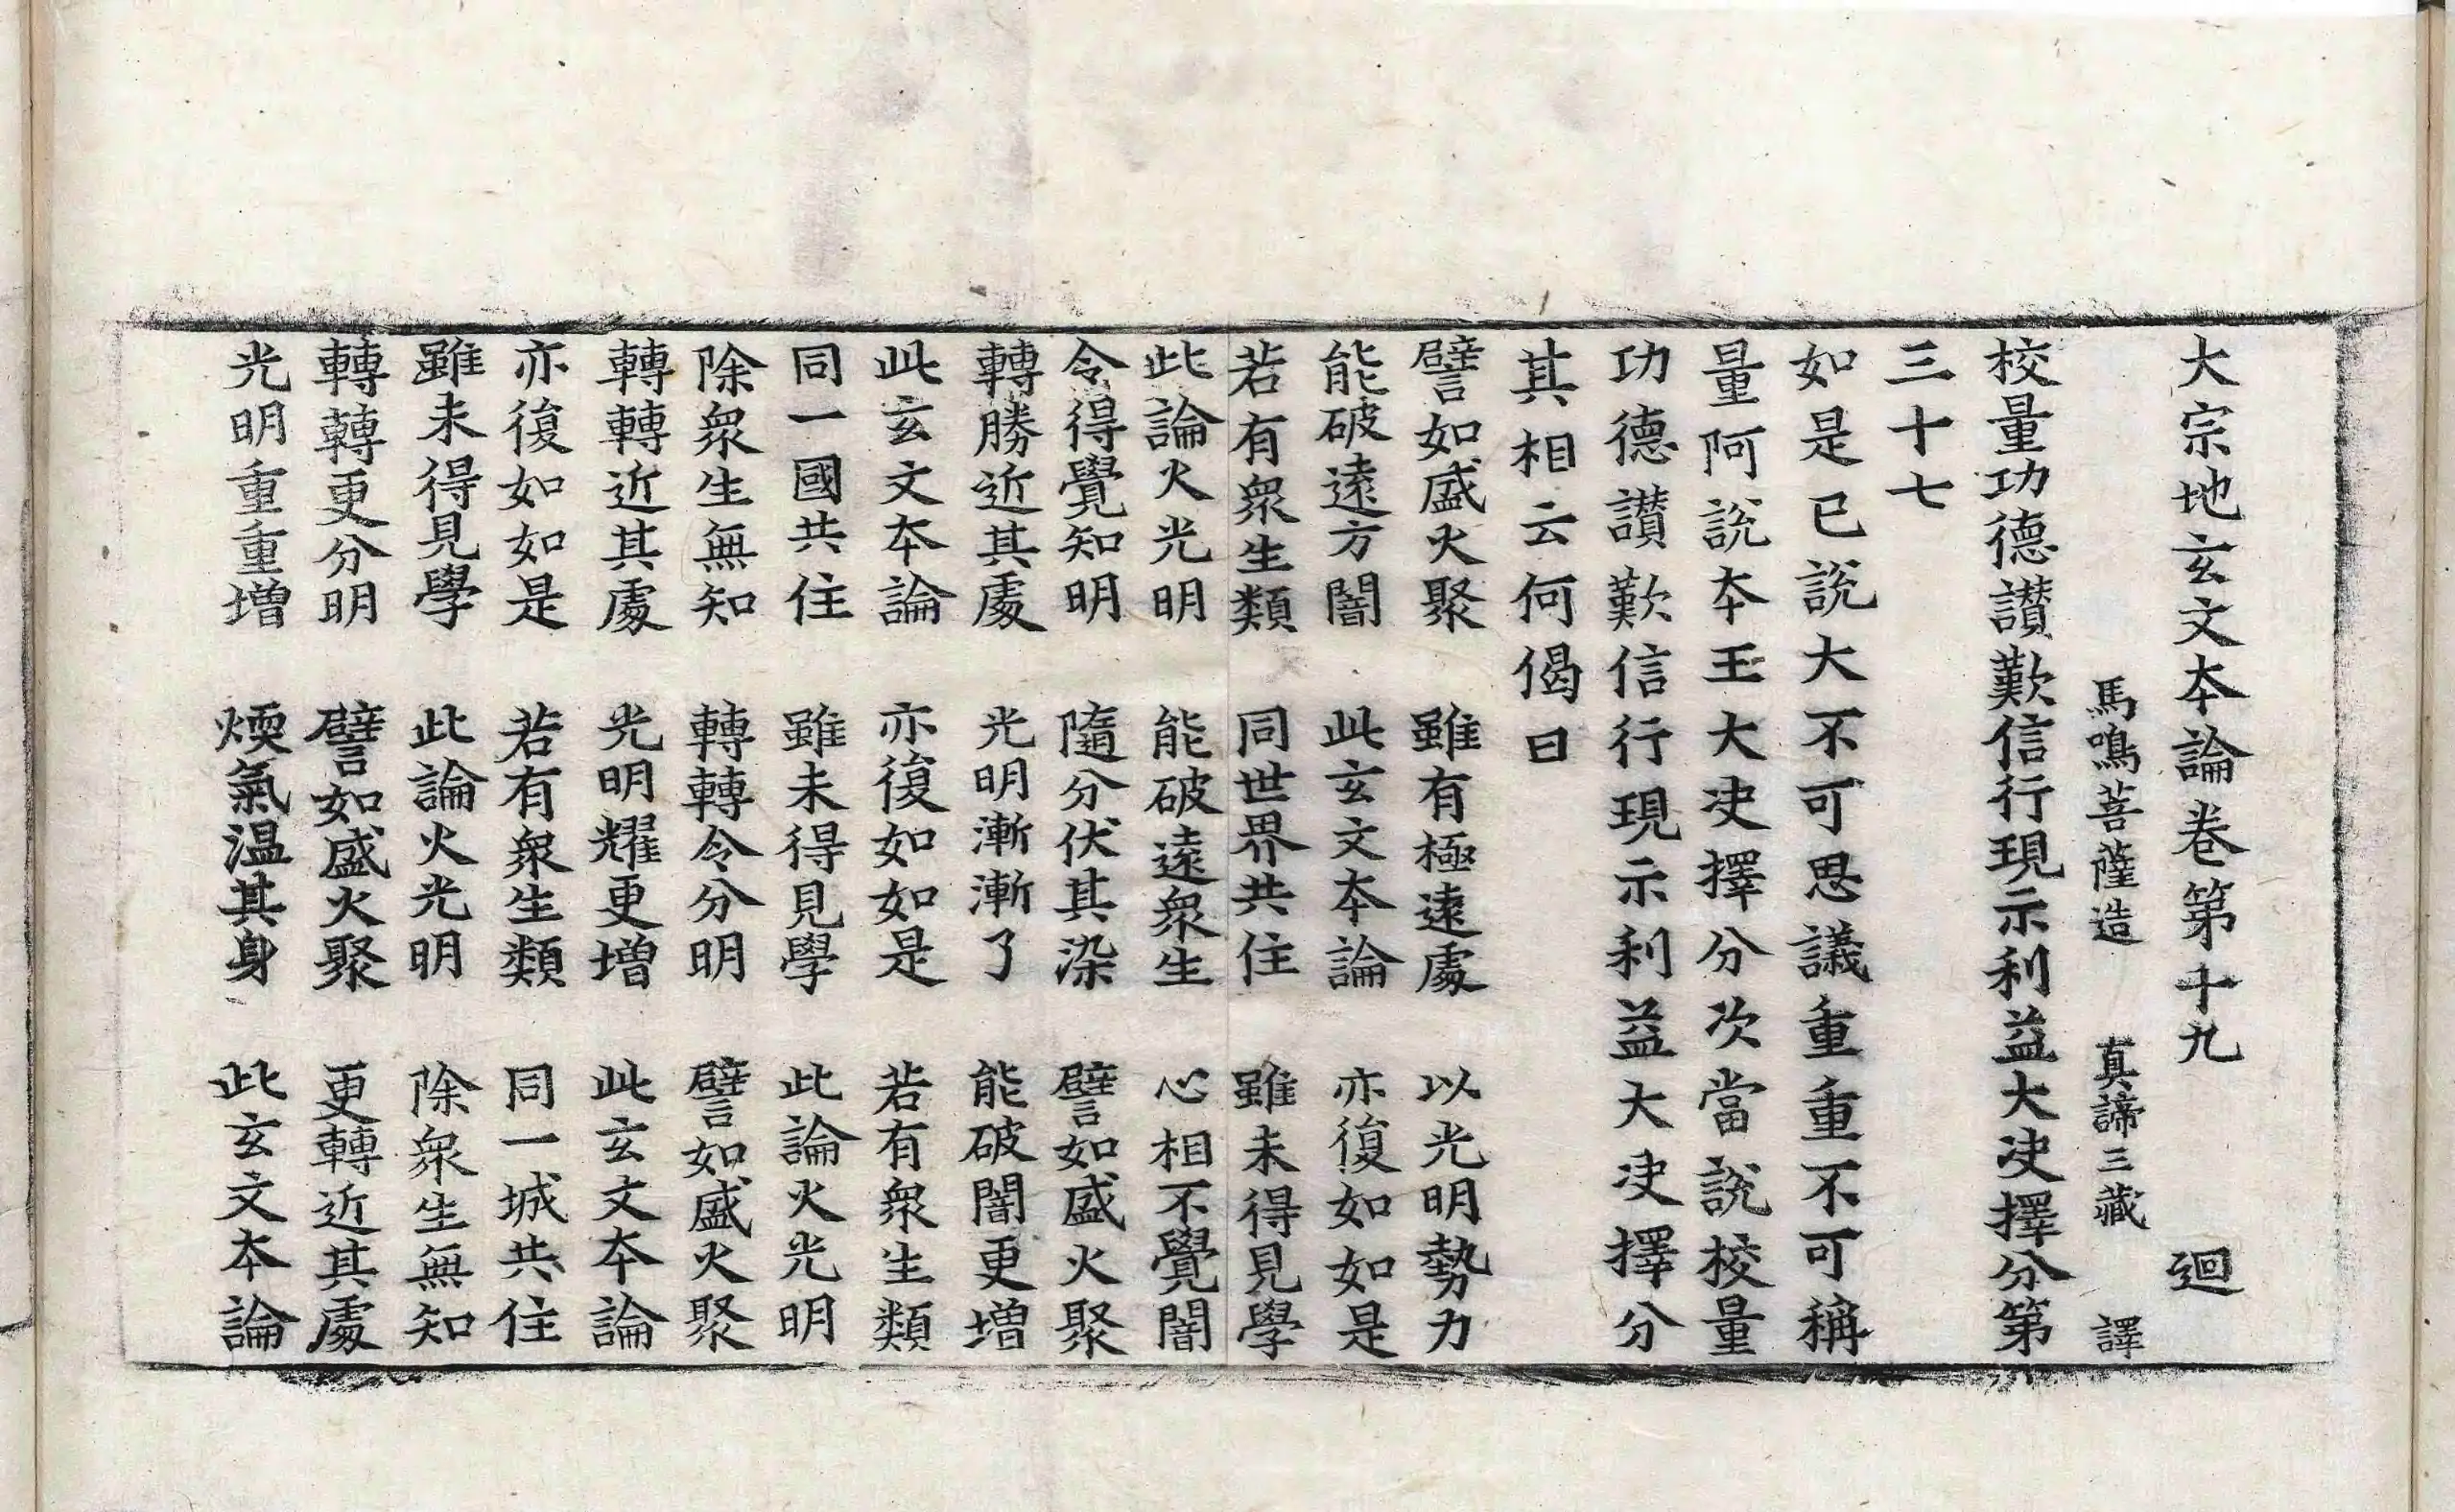 大宗地玄文本論卷第十九 迴
馬鳴菩薩造 真諦三藏 譯
校量功德讃歎信行現示利益大决擇分第
三十七
如是已說大不可思議重重不可稱
量阿說本王大决擇分次當說校量
功德讃歎信行現示利益大决擇分
其相云何偈曰
譬如盛火聚 雖有極遠處 以光明勢力
能破遠方闇 此玄文本論 亦復如如是
若有衆生類 同世界共住 雖未得見學
此論火光明 能破遠衆生 心相不覺闇
令得覺知明 隨分伏其染 譬如盛火聚
轉勝近其處 光明漸漸了 能破闇更増
此玄文本論 亦復如如是 若有衆生類
同一國共住 雖未得見學 此論火光明
除衆生無知 轉轉令分明 譬如盛火聚
轉轉近其處 光明耀更増 此玄文本論
亦復如如是 若有衆生類 同一城共住
雖未得見學 此論火光明 除衆生無知
轉轉更分明 譬如盛火聚 更轉近其處
光明重重増 煗氣温其身 此玄文本論